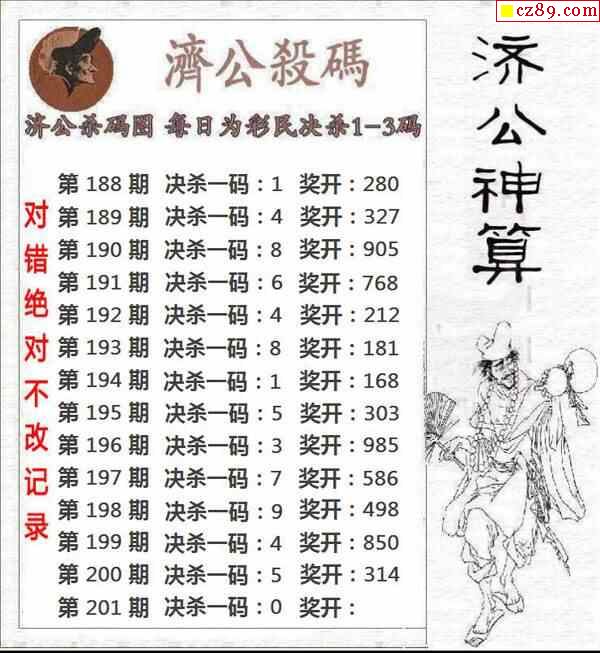 cz89.com
濟公殺碼
济公杀码图 每日为彩民决杀1-3码
第 188 期 决杀一码：1 奖开：280
第 189 期 决杀一码：4 奖开：327
第 190 期 决杀一码：8 奖开：905
第 191 期 决杀一码：6 奖开：768
第 192 期 决杀一码：4 奖开：212
第 193 期 决杀一码：8 奖开：181
第 194 期 决杀一码：1 奖开：168
第 195 期 决杀一码：5 奖开：303
第 196 期 决杀一码：3 奖开：985
第 197 期 决杀一码：7 奖开：586
第 198 期 决杀一码：9 奖开：498
第 199 期 决杀一码：4 奖开：850
第 200 期 决杀一码：5 奖开：314
第 201 期 决杀一码：0 奖开：
对错绝对不改记录
济公神算